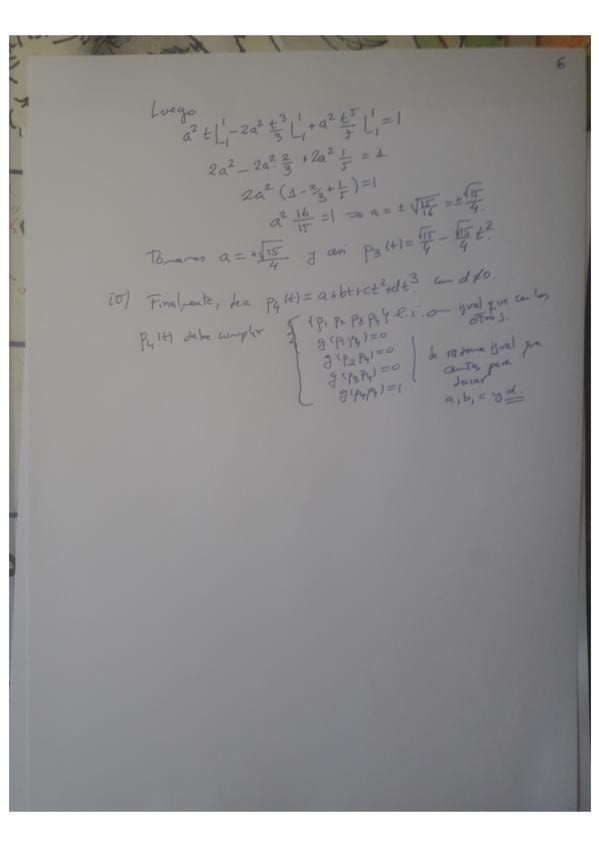 6
Luego
a² t|₋₁¹ - 2a² t³/3 |₋₁¹ + a² t⁵/5 |₋₁¹ = 1
2a² - 2a² · 2/3 + 2a² 1/5 = 1
2a² (1 - 2/3 + 1/5) = 1
a² 16/15 = 1 ⇒ a = ± √(15/16) = ± √15/4.
Tomamos a = +√15/4 y así p₃(t) = √15/4 - √15/4 t²
iv) Finalmente, sea p₄(t) = a+bt+ct²+dt³ con d≠0.
p₄(t) debe cumplir { {p₁ p₂ p₃ p₄} l.i. igual que con los otros.
g(p₁p₄)=0
g(p₂p₄)=0
g(p₃p₄)=0
g(p₄p₄)=1
de razona igual que
antes para
sacar
a, b, c y d.